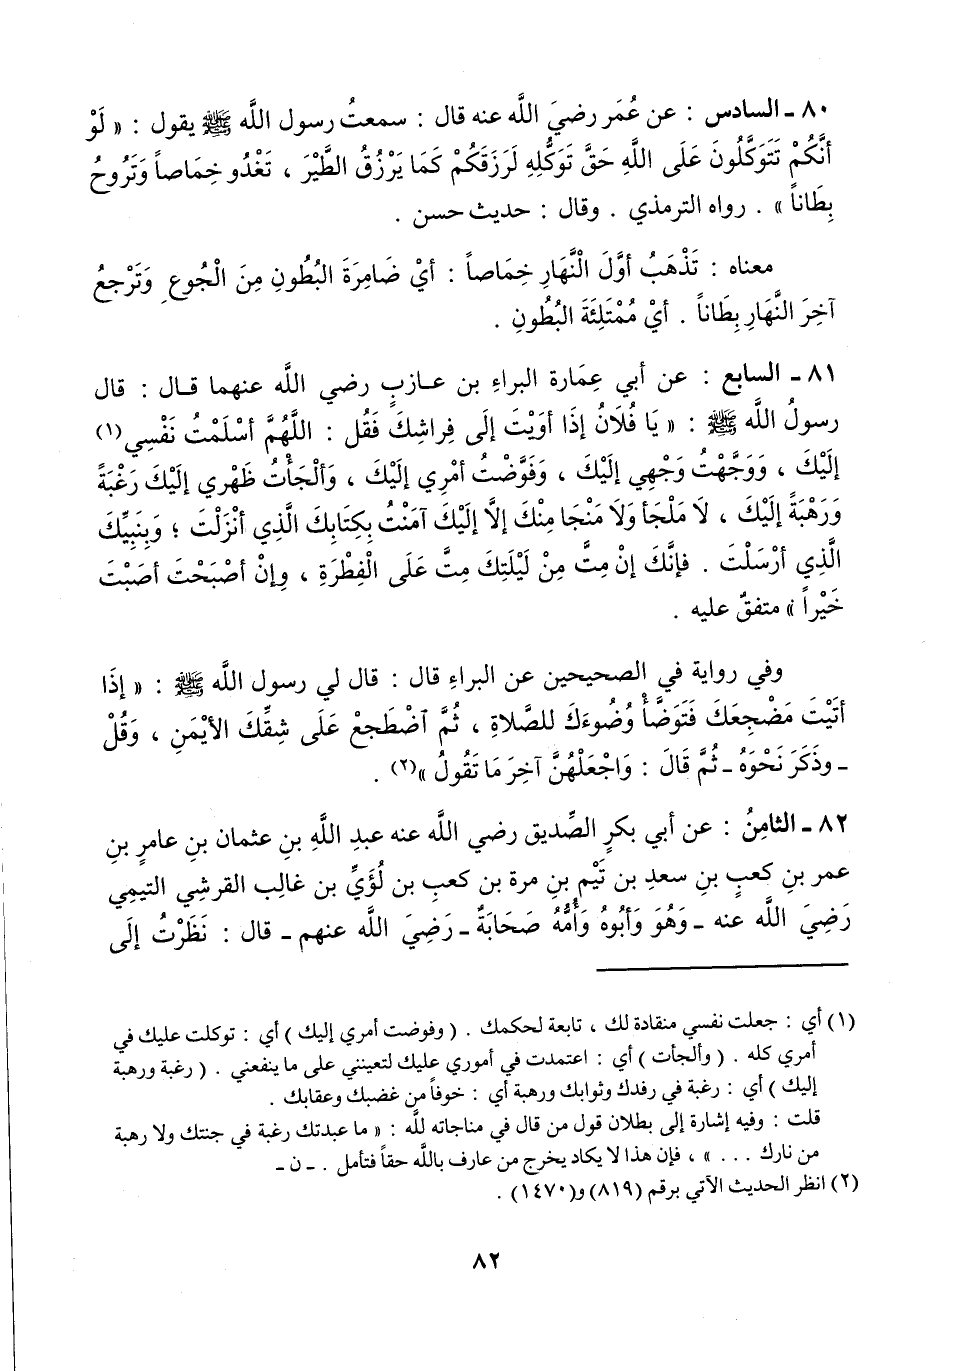 ٨٠ ـ السادس : عن عُمَر رضيَ اللَّه عنه قال : سمعتُ رسول اللَّه ﷺ يقول : « لَوْ
أنَّكُمْ تَتَوَكَّلُونَ عَلَى اللَّهِ حَقَّ تَوَكُّلِهِ لَرَزَقَكُمْ كَمَا يَرْزُقُ الطَّيْرَ ، تَغْدُو خِمَاصاً وَتَرُوحُ
بِطَاناً » . رواه الترمذي . وقال : حديث حسن .
معناه : تَذْهَبُ أوَّلَ النَّهَارِ خِمَاصاً : أيْ ضَامِرَةَ البُطُونِ مِنَ الْجُوعِ وَتَرْجعُ
آخِرَ النَّهَارِ بِطَاناً . أيْ مُمْتَلِئَةَ البُطُونِ .
٨١ ـ السابع : عن أبي عِمَارة البراءِ بن عـازبٍ رضي اللَّه عنهما قـال : قال
رسولُ اللَّه ﷺ : « يَا فُلَانُ إذَا أوَيْتَ إلَى فِراشِكَ فَقُل : اللَّهُمَّ أسْلَمْتُ نَفْسِي(١)
إلَيْكَ ، وَوَجَّهْتُ وَجْهِي إلَيْكَ ، وَفَوَّضْتُ أمْرِي إلَيْكَ ، وَألْجَأْتُ ظَهْري إلَيْكَ رَغْبَةً
وَرَهْبَةً إلَيْكَ ، لَا مَلْجَأ وَلَا مَنْجَا مِنْكَ إلَّا إلَيْكَ آمَنْتُ بِكِتَابِكَ الَّذِي أنْزَلْتَ ؛ وَبِنَبِيِّكَ
الَّذِي أرْسَلْتَ . فإنَّكَ إنْ مِتَّ مِنْ لَيْلَتِكَ مِتَّ عَلَى الْفِطْرَةِ ، وإنْ أصْبَحْتَ أصَبْتَ
خَيْراً » متفقٌ عليه .
وفي رواية في الصحيحين عن البراءِ قال : قال لي رسول اللَّه ﷺ : « إذَا
أتَيْتَ مَضْجِعَكَ فَتَوَضَّأْ وُضُوءَكَ للصَّلاةِ ، ثُمَّ ٱضْطَجِعْ عَلَى شِقِّكَ الأيْمَنِ ، وَقُلْ
ـ وذَكَرَ نَحْوَهُ ـ ثُمَّ قَالَ : وَاجْعَلْهُنَّ آخِرَ مَا تَقُولُ »(٢) .
٨٢ ـ الثامِنُ : عن أبي بكرٍ الصِّديق رضي اللَّه عنه عبدِ اللَّهِ بنِ عثمان بنِ عامرِ بنِ
عمر بنِ كعبِ بنِ سعدِ بن تَيْمِ بنِ مرة بن كعبِ بن لُؤَيِّ بن غالب القرشي التيمِي
رَضِيَ اللَّه عنه ـ وَهُوَ وَأبُوهُ وَأُمُّهُ صَحَابَةٌ ـ رَضِيَ اللَّه عنهم ـ قال : نَظَرْتُ إلَى
(١) أي : جعلت نفسي منقادة لك ، تابعة لحكمك . ( وفوضت أمري إليك ) أي : توكلت عليك في
أمري كله . ( وألجأت ) أي : اعتمدت في أموري عليك لتعينني على ما ينفعني . ( رغبة ورهبة
إليك ) أي : رغبة في رفدك وثوابك ورهبة أي : خوفاً من غضبك وعقابك .
قلت : وفيه إشارة إلى بطلان قول من قال في مناجاته للَّه : « ما عبدتك رغبة في جنتك ولا رهبة
من نارك . . . » ، فإن هذا لا يكاد يخرج من عارف باللَّه حقاً فتأمل . ـ ن ـ
(٢) انظر الحديث الآتي برقم (٨١٩) و(١٤٧٠) .
٨٢